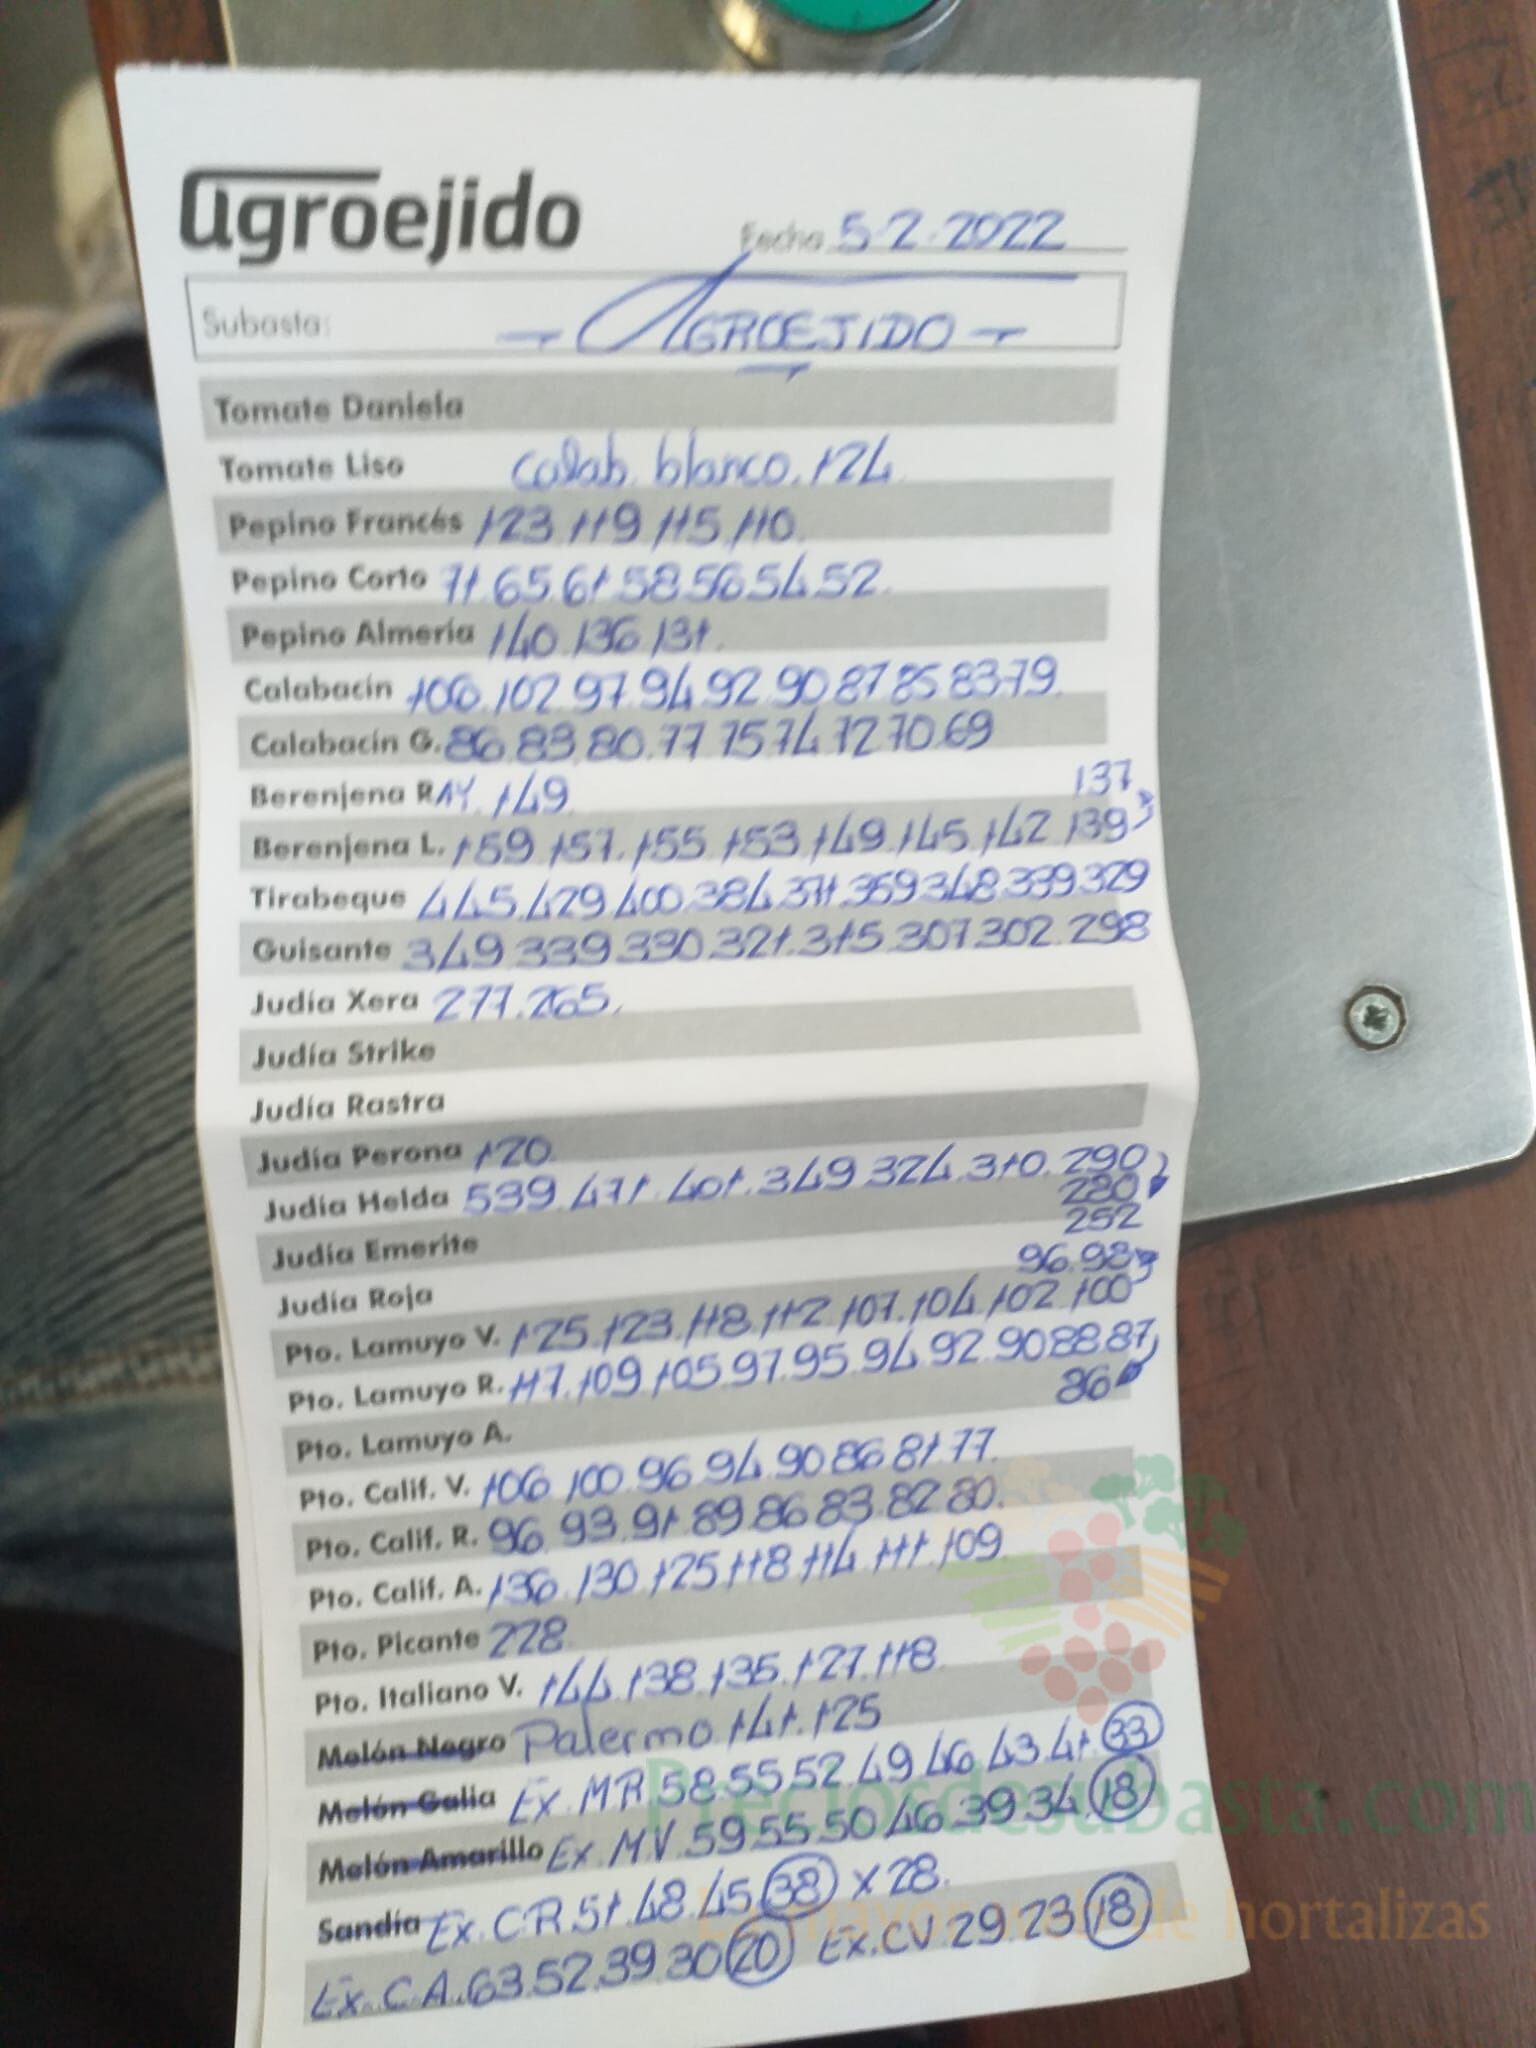 agroejido
Fecha 5-2-2022
Subasta: - AGROEJIDO -
Tomate Daniela
Tomate Liso Calab. blanco. 124
Pepino Francés 123.119.115.110.
Pepino Corto 71.65.61.58.56.54.52.
Pepino Almería 140.136.131.
Calabacín 106.102.97.94.92.90.87.85.83.79.
Calabacín G. 86.83.80.77.75.74.72.70.69
Berenjena RAY. 149. 137
Berenjena L. 159.157.155.153.149.145.142.139
Tirabeque 445.429.400.384.371.359.348.339.329
Guisante 349.339.330.321.315.307.302.298
Judía Xera 277.265.
Judía Strike
Judía Rastra
Judía Perona 120.
Judía Helda 539.471.401.349.324.310.290
280
Judía Emerite 252
96.98
Judía Roja
Pto. Lamuyo V. 125.123.118.112.107.104.102.100
Pto. Lamuyo R. 117.109.105.97.95.94.92.90.88.87
86
Pto. Lamuyo A.
Pto. Calif. V. 106.100.96.94.90.86.81.77.
Pto. Calif. R. 96.93.91.89.86.83.82.80.
Pto. Calif. A. 136.130.125.118.114.111.109.
Pto. Picante 228.
Pto. Italiano V. 144.138.135.127.118.
Melón Negro Palermo.141.125
Melón Galia Ex.MR.58.55.52.49.46.43.41.33
Melón Amarillo Ex.MV.59.55.50.46.39.34.18
Sandía Ex.CR.51.48.45.38 x 28.
Ex.CA.63.52.39.30.20 Ex.CV.29.23.18
Preciosdesubasta.com
de hortalizas